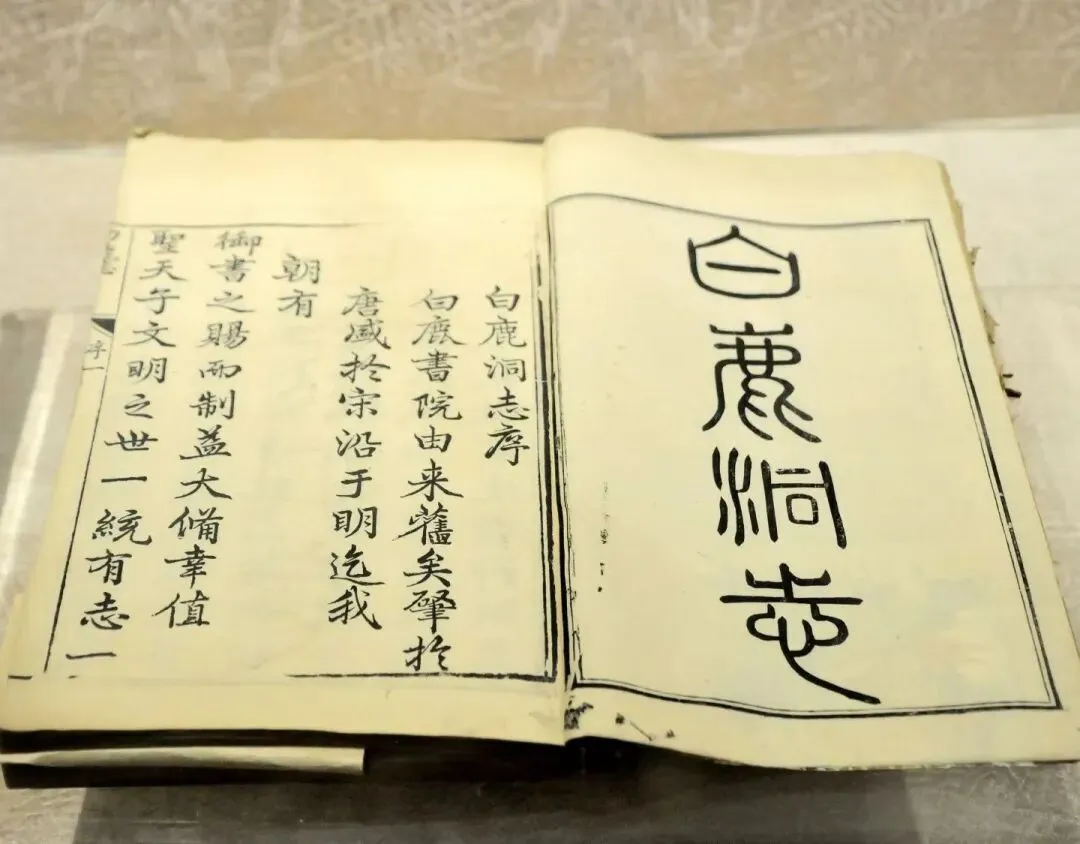 白鹿洞志
白鹿洞志序
白鹿書院由来舊矣肇於
唐盛於宋沿于明迄我
朝有
御書之賜而制益大備幸值
聖天子文明之世一統有志一
序一